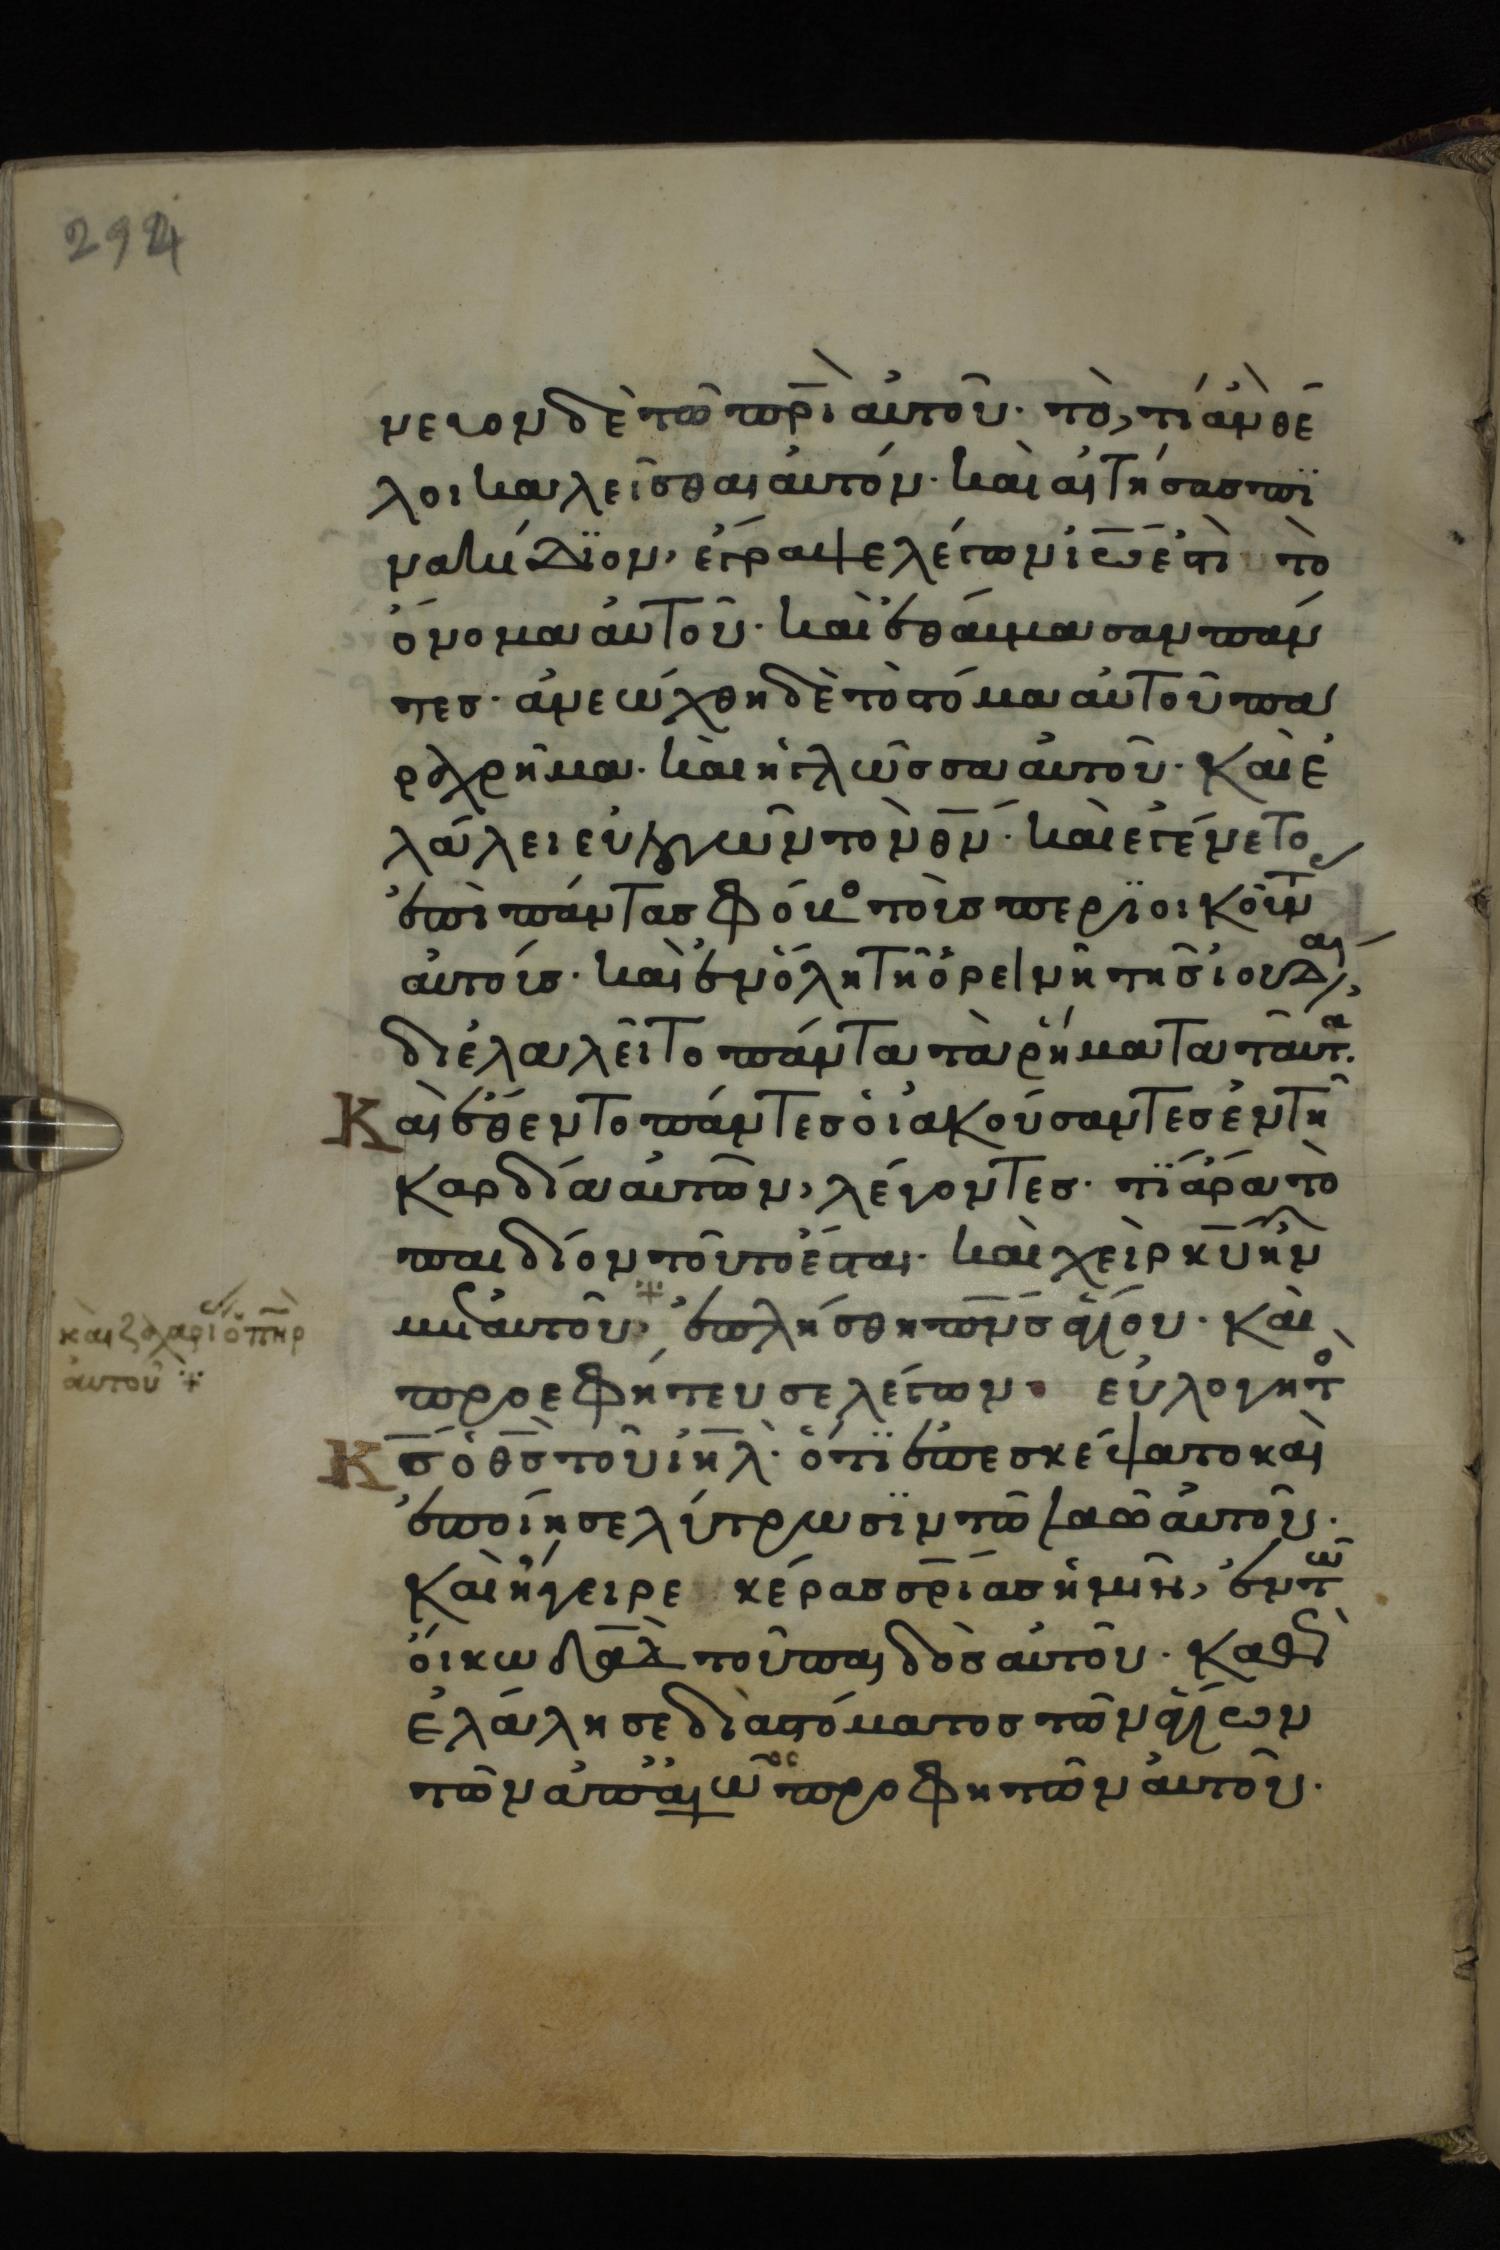 294
νευον δὲ τῶ πρ̅ὶ αὐτοῦ· τὸ, τί ἂν θέ
λοι καλεῖσθαι αὐτόν· καὶ αἰτήσας πι
νακίδϊον, ἔγραψε λέγων ἰω̅ ἐστὶ τὸ
ὄνομα αὐτοῦ· καὶ ἐθαύμασαν πάν
τες· ἀνεώχθη δὲ τὸ στόμα αὐτοῦ πα
ραχρῆμα· καὶ ἡ γλῶσσα αὐτοῦ· καὶ ἐ
λάλει εὐλογῶν τὸν θν̅· καὶ ἐγένετο
ἐπὶ πάντας φόβος τοὺς περϊοικοῦντ
αὐτούς· καὶ ἐν ὅλη τῆ ὀρεινῆ τῆς ἰουδαί,
διελαλεῖτο πάντα τὰ ῥήματα ταῦτα.
Καὶ ἔθεντο πάντες οἱ ἀκούσαντες ἐν τῆ
καρδία αὐτῶν, λέγοντες· τί ἄρα τὸ
παιδίον τοῦτο ἔσται· καὶ χεὶρ κυ̅ ἦν
μετ αὐτοῦ, ἐπλήσθη πν̅ς ἁγίου· καὶ
καὶ ζαχαρί ὁ πη̅ρ
αὐτοῦ
προεφήτευσε λέγων· εὐλογητὸ
Κς̅ ὁ θς̅ τοῦ ιη̅λ· ὅτϊ ἐπεσκέψατο καὶ
ἐποίησε λύτρωσϊν τῶ λαῶ αὐτοῦ·
καὶ ἤγειρε κέρας σρ̅ίας ἡμῖν, ἐν τῶ
οἴκω δα̅δ τοῦ παιδὸς αὐτοῦ· καθὼ
ἐλάλησε διὰ στόματος τῶν ἁγίων
τῶν ἀπ αἰῶνος προφητῶν αὐτοῦ·